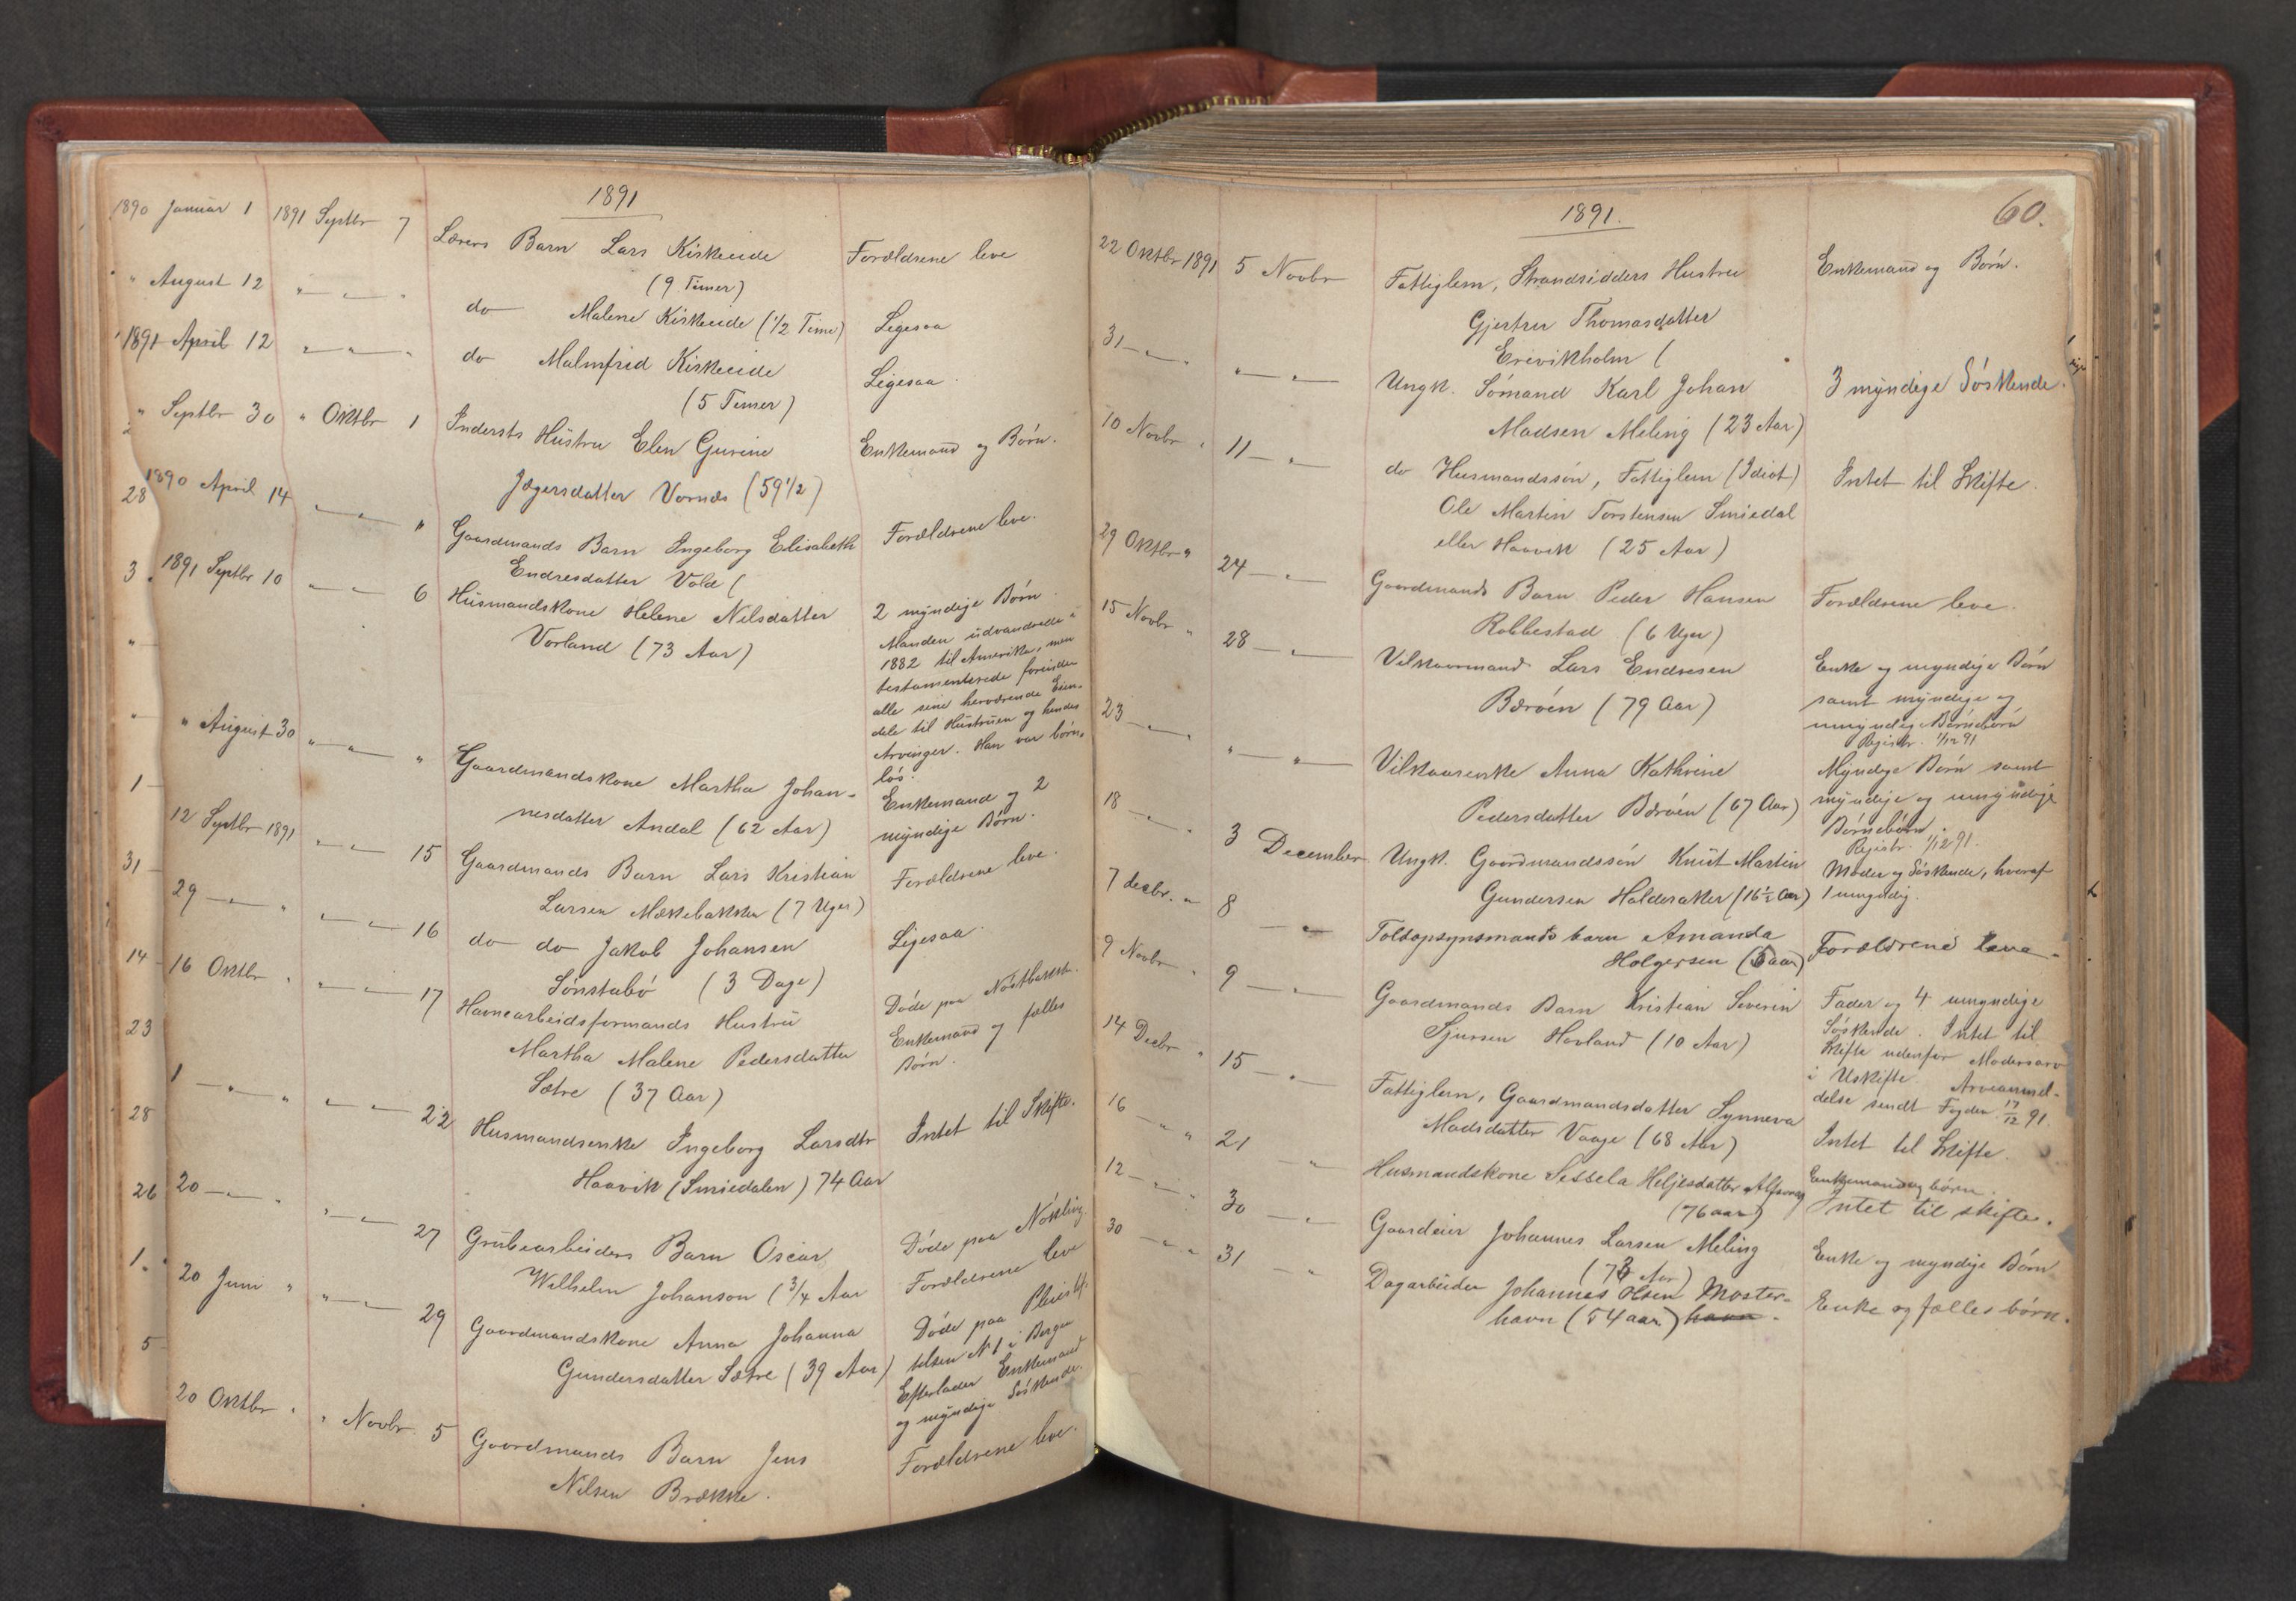 1891
1890 Januar 1 1891 Septbr 7 Lærers Barn Lars Kirkeeide Forældrene leve
(9 Timer)
" August 12 " — " — " do Malene Kirkeeide (1/2 Time) Ligesaa
1891 April 12 " — " — " do Malmfrid Kirkeeide Ligesaa.
(5 Timer)
" Septbr 30 " Oktbr 1 Indersts Hustru Elen Gurine Enkemand og Børn.
Jægersdatter Vornæs (59 1/2)
1890 April 14 " — " — " Gaardmands Barn Ingeborg Elisabeth Forældrene leve.
Endresdatter Vold (
1891 Septbr 10 " — " — 6 Husmandskone Helene Nilsdatter 2 myndige Børn.
Vorland (73 Aar) Manden udvandrede i
1882 til Amerika, men
testamenterede forinden
alle sine herværende Eien-
dele til Hustruen og hendes
Arvinger. Han var børn-
løs.
" August 30 " — " — " Gaardmandskone Martha Johan- Enkemand og 2
nesdatter Andal (62 Aar) myndige Børn.
12 Septbr 1891 " — " — 15 Gaardmands Barn Lars Kristian Forældrene leve.
Larsen Mækebakken (7 Uger)
29 — " — " " — " — 16 do do Jakob Johansen Ligesaa.
Sønstabø (3 Dage)
16 Oktbr " " — " — 17 Havnearbeidsformands Hustru Døde paa
Martha Malene Pedersdatter Enkemand og fælles
Sætre (37 Aar) Børn.
1 — " — " " — " — 22 Husmandsenke Ingeborg Larsdtr Intet til Skifte.
Haavik (Smiedalen) 74 Aar
20 — " — " " — " — 27 Grubearbeiders Barn Oscar Døde paa
Wilhelm Johanson (3/4 Aar Forældrene leve
20 Juni " " — " — 29 Gaardmandskone Anna Johanna Døde paa Pleiestif-
Gundersdatter Sætre (39 Aar) telsen No 1 i Bergen
Efterlader Enkemand
og myndige Søskende.
20 Oktbr " " Novbr. 5 Gaardmands Barn Jens Forældrene leve.
Nilsen Brække.
28
3
1
31
14
23
28
26
1
5
1891.
60.
22 Oktbr 1891 5 Novbr Fattiglem, Strandsidders Hustru Enkemand og Børn.
Gjertru Thomasdatter
Erivikholm (
31 — " — " " — " — Ungk. Sømand Karl Johan 3 myndige Søskende.
Madsen Meling (23 Aar)
10 Novbr " 11 — " — do Husmandssøn, Fattiglem (Idiot) Intet til Skifte.
Ole Martin Torstensen Smiedal
eller Haavik (25 Aar)
29 Oktbr " 24 — " — Gaardmands Barn Peder Hansen Forældrene leve.
Robbestad (6 Uger)
15 Novbr " 28 — " — Vilkaarmand Lars Endresen Enke og myndige Børn
Børøen (79 Aar) samt myndige og
umyndige Børnebørn
Registr. 1/12 91
23 — " — " " — " — Vilkaarenke Anna Kathrine Myndige Børn samt
Pedersdatter Børøen (67 Aar) myndige og umyndige
Børnebørn.
Registr. 1/12 91.
18 — " — " 3 December Ungk. Gaardmandssøn Knut Martin Moder og Søskende, hvoraf
Gundersen Halderaker (16 1/2 Aar) 1 umyndig.
7 decbr. " 8 — " — Toldopsynsmands barn Amanda Forældrene leve.
Holgersen (5 aar)
9 Novbr " 9 — " — Gaardmands Barn Kristian Severin Fader og 4 umyndige
Sjursen Hovland (10 Aar) Søskende. Intet til
Skifte udenfor Modersarv
i Uskifte. Arveanmel-
delse sendt Fogden 17/12 91.
14 Decbr " 15 — " — Fattiglem, Gaardmandsdatter Synneva Intet til Skifte.
Madsdatter Vaage (68 Aar)
16 — " — " 21 — " — Husmandskone Sessela Heljesdatter Enkemand og børn.
(76 aar) Intet til skifte.
12 — " — " 30 — " — Gaardeier Johannes Larsen Meling Enke og myndige Børn
(73 Aar)
30 — " — " 31 — " — Dagarbeider Johannes Olsen Moster- Enke og fælles børn.
havn (54 aar) havn.